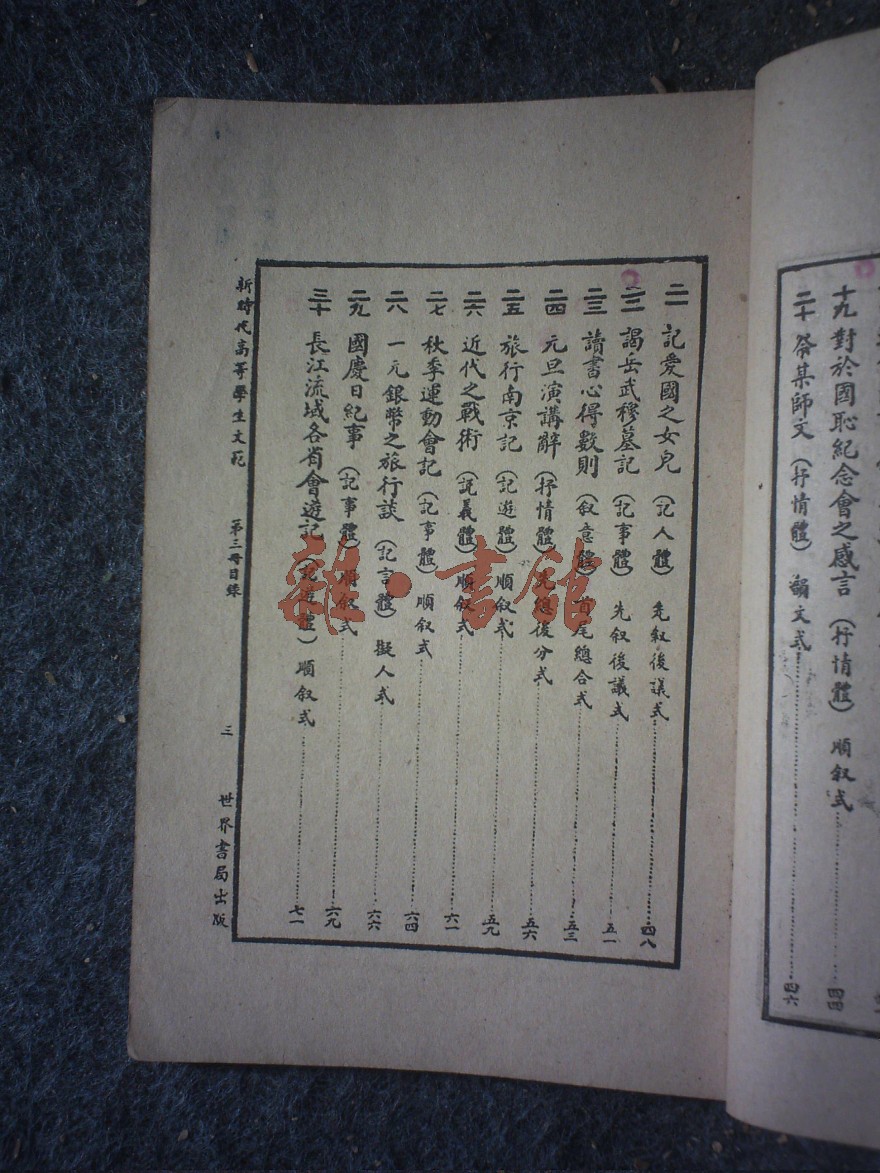 十九 對於國恥紀念會之感言 (抒情體) 順叙式 四四
二十 祭某師文 (抒情體) 韻文式 四六
二一 記愛國之女兒 (記人體) 先叙後議式 四八
二二 謁岳武穆墓記 (記事體) 先叙後議式 五一
二三 讀書心得數則 (叙意體) 首尾總合式 五三
二四 元旦演講辭 (抒情體) 先總後分式 五六
二五 旅行南京記 (記遊體) 順叙式 五九
二六 近代之戰術 (說義體) 順叙式 六一
二七 秋季運動會記 (記事體) 順叙式 六四
二八 一元銀幣之旅行談 (記言體) 擬人式 六六
二九 國慶日紀事 (記事體) 順叙式 六九
三十 長江流域各省會遊記 (記遊體) 順叙式 七一
新時代高等學生文範 第三册目錄 三 世界書局出版
雜·書館